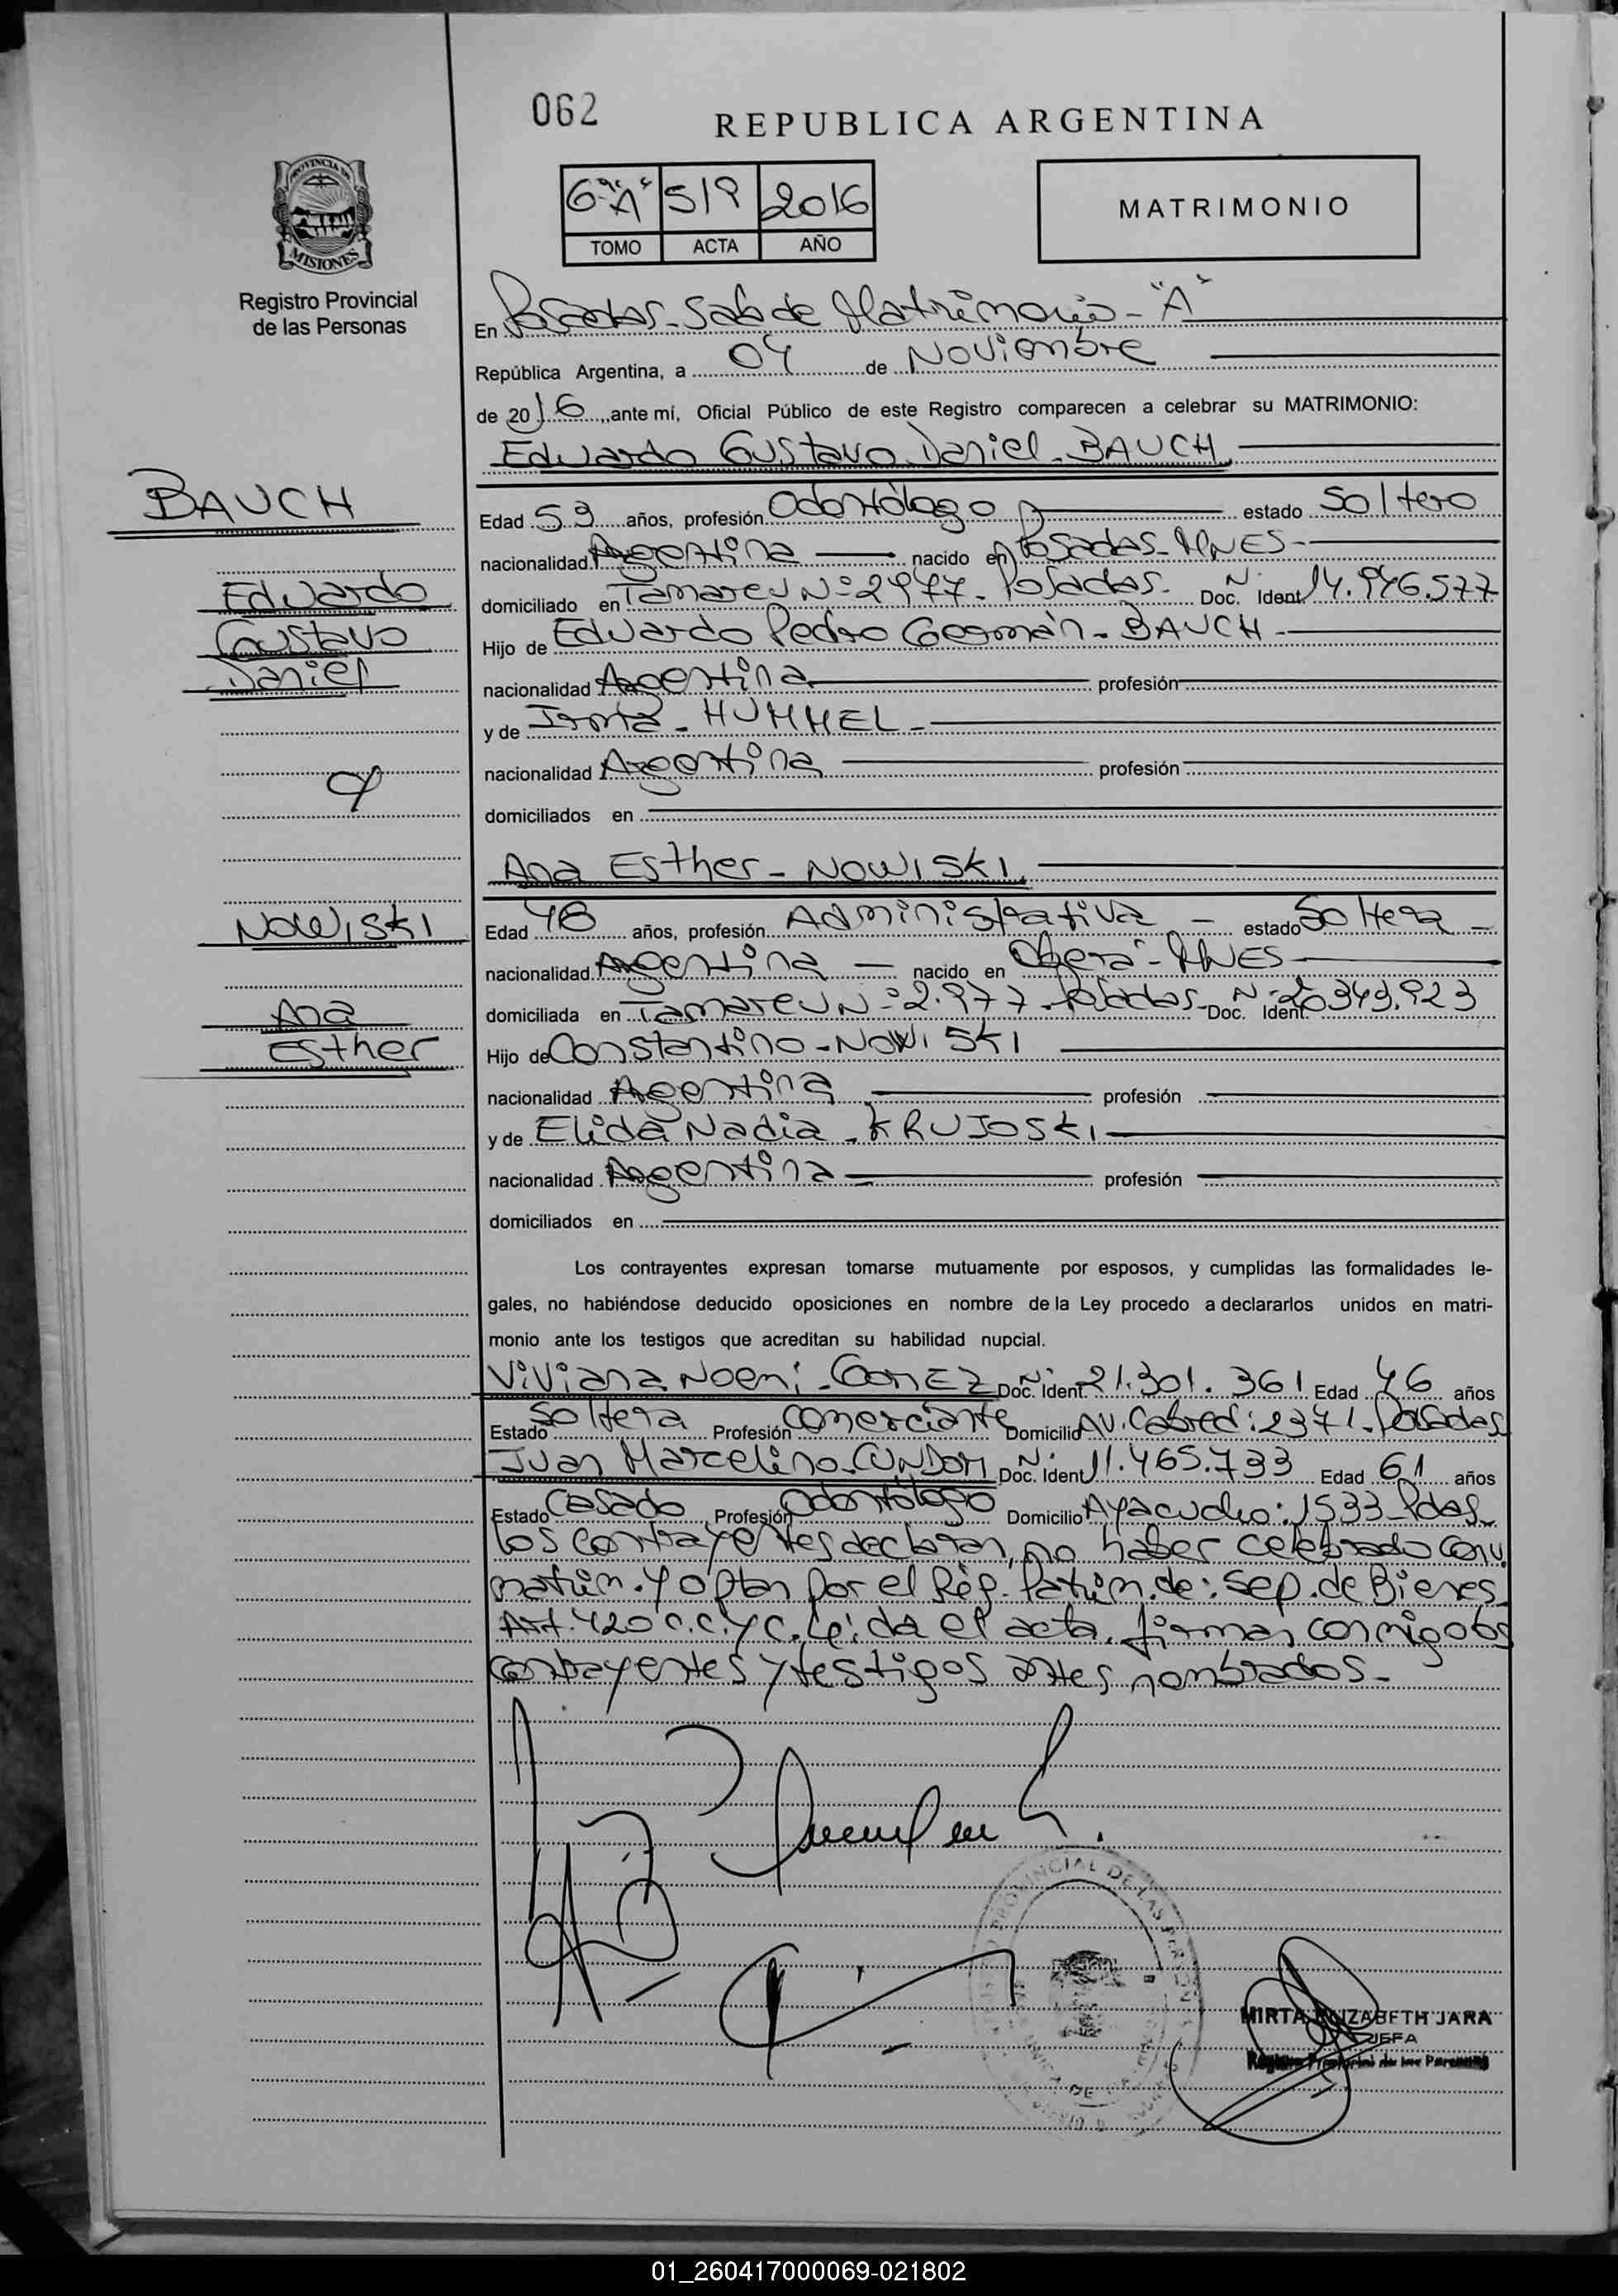 062
REPUBLICA ARGENTINA
PROVINCIA DE
MISIONES
Registro Provincial
de las Personas
6º "A" 519 2016
TOMO ACTA AÑO
MATRIMONIO
En Posadas - Sala de Matrimonio - "A"
República Argentina, a 04 de Noviembre
de 2016, ante mí, Oficial Público de este Registro comparecen a celebrar su MATRIMONIO:
Eduardo Gustavo Daniel - BAUCH
BAUCH
Eduardo
Gustavo
Daniel
y
Edad 53 años, profesión Odontólogo estado Soltero
nacionalidad Argentina nacido en Posadas - MNES -
domiciliado en Tamareu Nº 2977 - Posadas - Doc. Ident. Nº 14.946.577
Hijo de Eduardo Pedro Germán - BAUCH -
nacionalidad Argentina profesión
y de Irma - HUMMEL -
nacionalidad Argentina profesión
domiciliados en
Ana Esther - NOWISKI
NOWISKI
Ana
Esther
Edad 48 años, profesión Administrativa - estado Soltera -
nacionalidad Argentina - nacido en Oberá - MNES -
domiciliada en Tamareu Nº 2.977 - Posadas - Doc. Ident. Nº 20.343.923
Hijo de Constantino - NOWISKI
nacionalidad Argentina profesión
y de Elida Nadia - KRUJOSKI
nacionalidad Argentina profesión
domiciliados en
Los contrayentes expresan tomarse mutuamente por esposos, y cumplidas las formalidades le-
gales, no habiéndose deducido oposiciones en nombre de la Ley procedo a declararlos unidos en matri-
monio ante los testigos que acreditan su habilidad nupcial.
Viviana Noemi - GOMEZ Doc. Ident. Nº 21.301.361 Edad 46 años
Estado Soltera Profesión Comerciante Domicilio AV. Cabred: 2371 - Posadas
Juan Marcelino - CUNDOM Doc. Ident. Nº 11.465.733 Edad 61 años
Estado Casado Profesión Odontólogo Domicilio Ayacucho: 1533 - Pdas -
Los contrayentes declaran, no haber celebrado conv.
matrim. y optan por el Rég. Patrim. de: Sep. de Bienes
Art. 420 C.C.y C. Leída el acta, firman conmigo los
contrayentes y testigos antes nombrados -
PROVINCIAL DE LAS PERSONAS
MIRTA ELIZABETH JARA
JEFA
Registro Provincial de las Personas
01_260417000069-021802